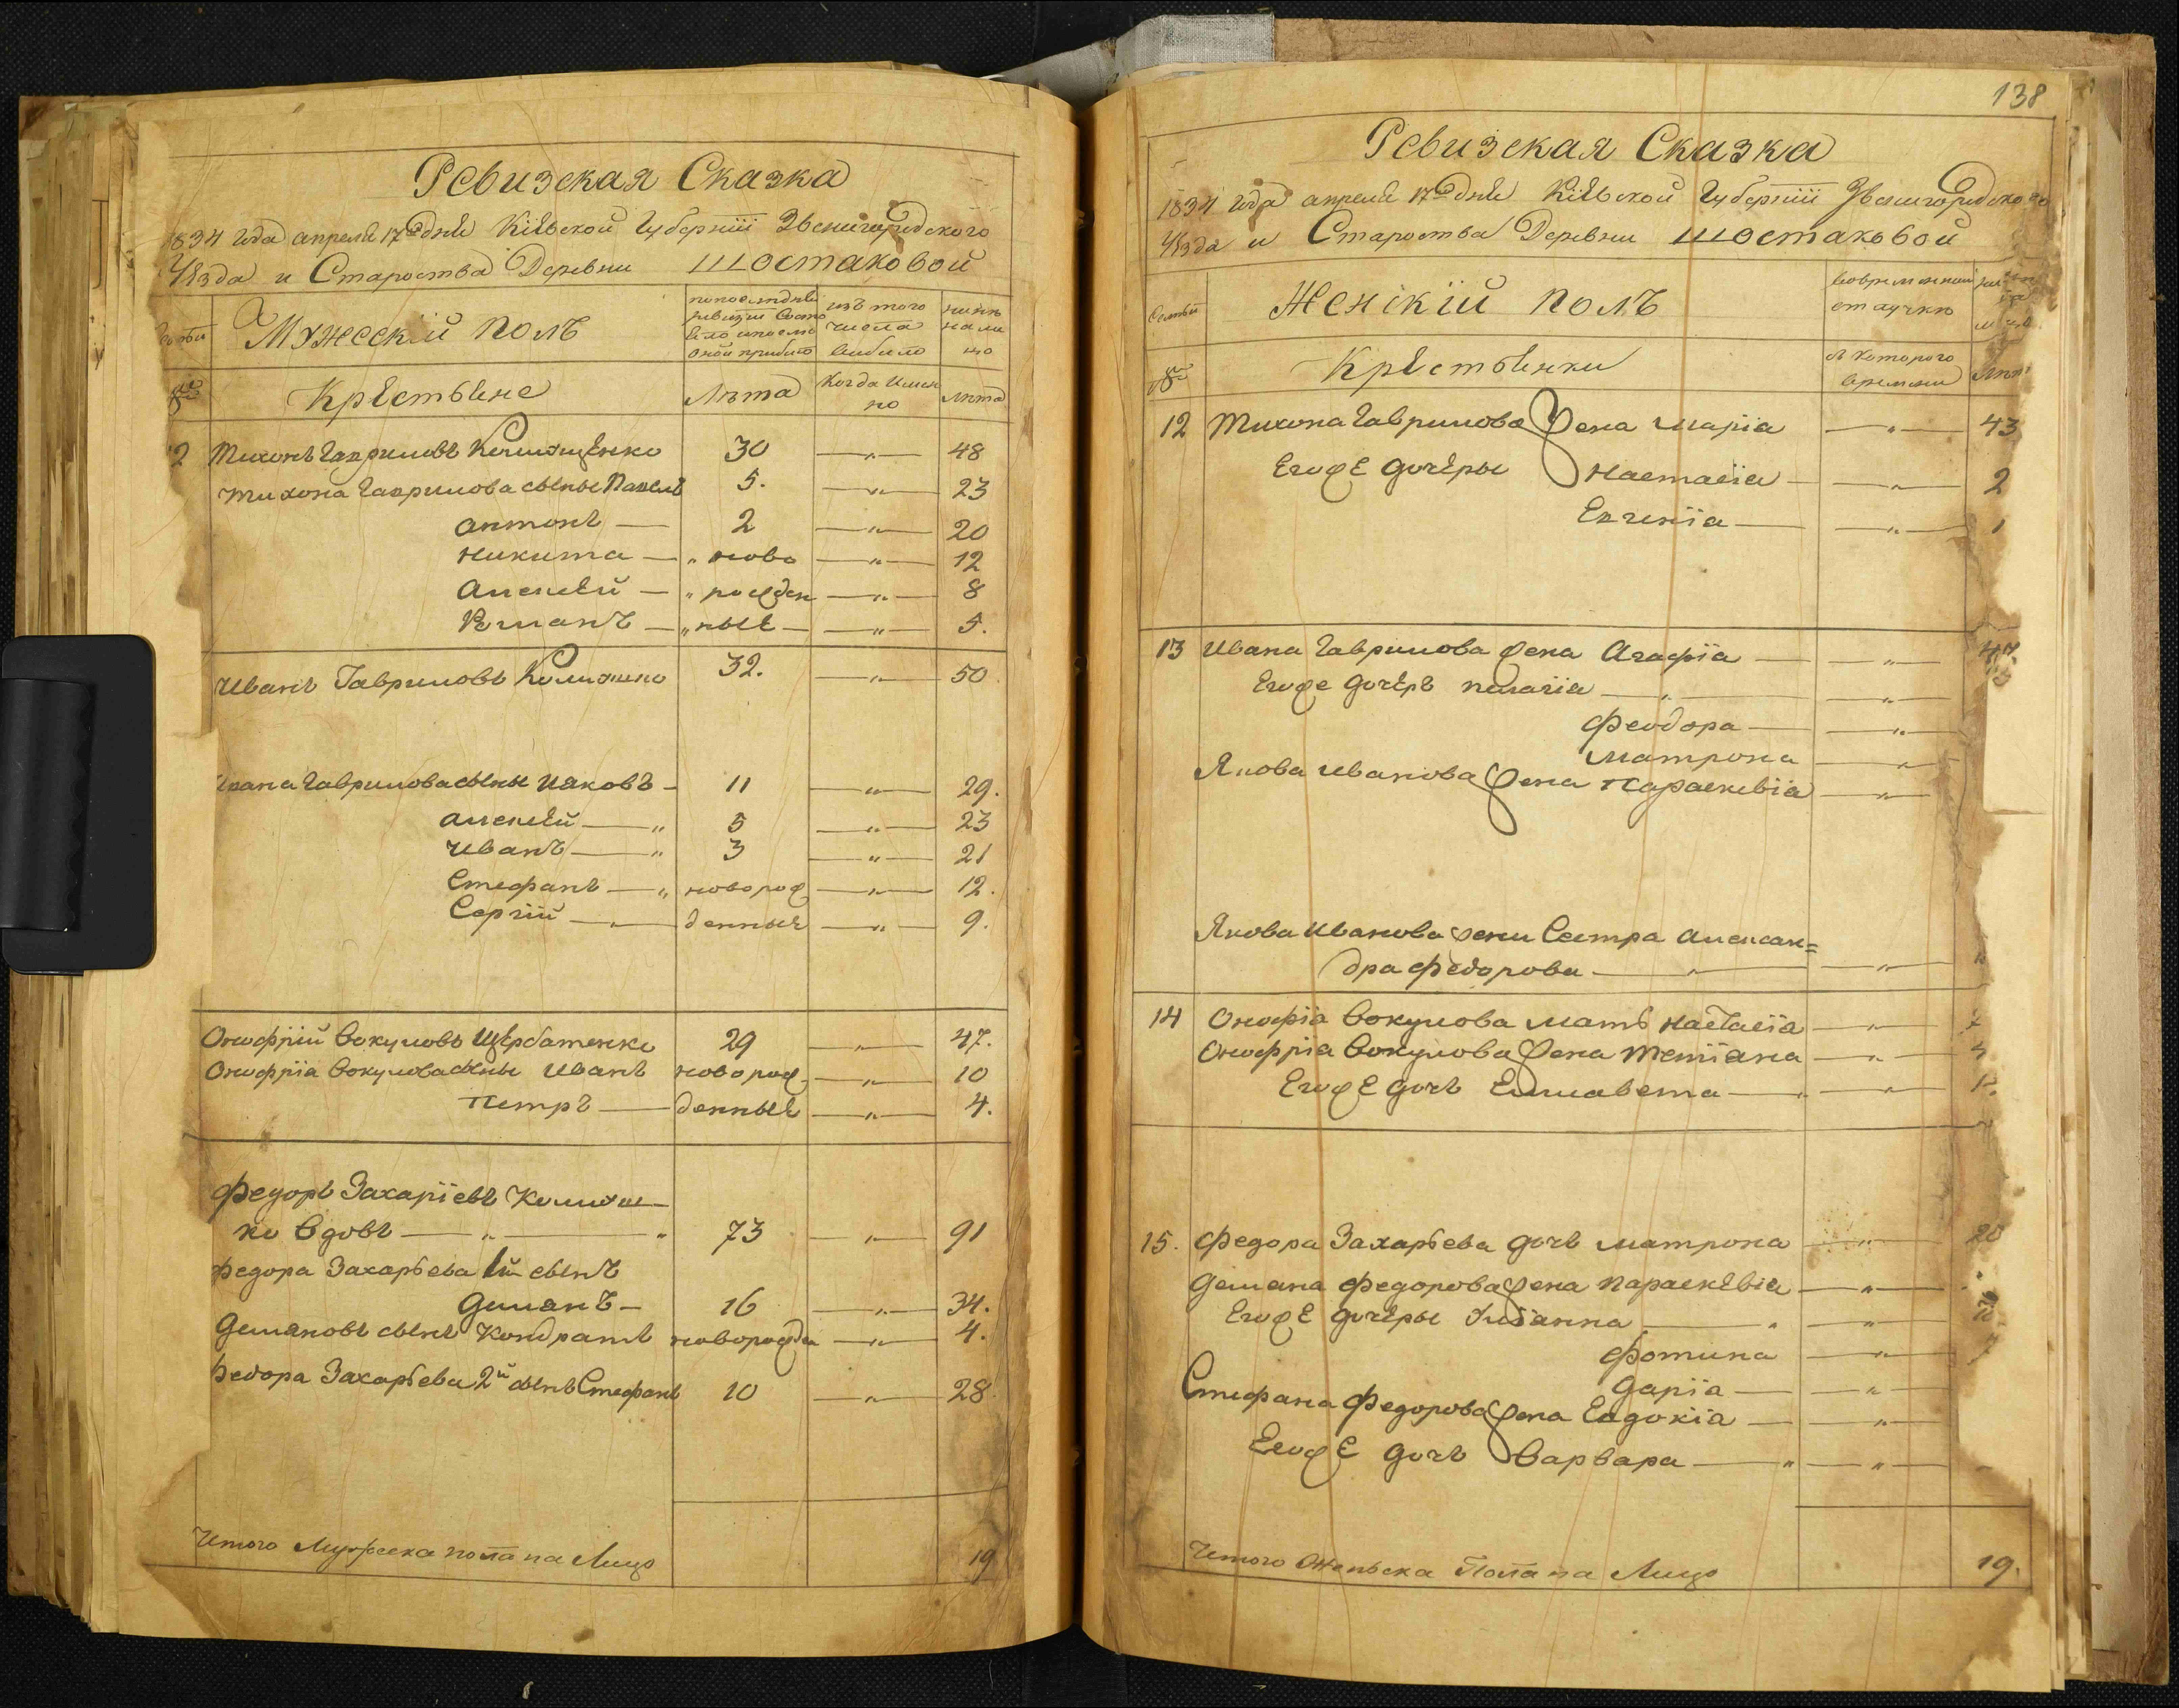 Ревизская Сказка
1834 года апреля 17го дня Кіевской Губерніи Звенигородского
Уѣзда и Староства Деревни Шостаковой
Мужескій полъ
по последней ревизіи состояло и после оной прибыло
изъ того числа выбыло
нынѣ на лицо
№
Крестьяне
Лѣта
Когда имен
но
Лѣта
12 Тихонъ Гавриловъ 30 — „ — 48
Тихона Гаврилова сыны Павелъ 5. — „ — 23
Антонъ — 2 — „ — 20
Никита — „ ново — „ — 12
Алексѣй — „ рожден — „ — 8
Романъ — „ ные — — „ — 5.
Иванъ Гавриловъ 32. — „ — 50
Ивана Гаврилова сыны Иаковъ — 11 — „ — 29.
Алексей — „ 5 — „ — 23
Иванъ — „ 3 — „ — 21
Стефанъ — „ новорож — „ — 12.
Сергій — „ — денные — „ — 9.
Онофрій Вакуловъ Щербатенко 29 — „ — 47.
Онофрія Вакулова сыны Иванъ новорож — „ — 10
Петръ — денные — „ — 4.
Федоръ Захаріевъ Колиош
ко вдовъ — „ — „ 73 — „ — 91
Федора Захарьева 1й сынъ
Демянъ — 16 — „ — 34.
Демяновъ сынъ Кондратъ новорожден — „ — 4.
Федора Захарьева 2й сынъ Стефанъ 10 — „ — 28.
Итого Мужеска пола на Лицо 19
138
Ревизская Сказка
1834 года апреля 17го дня Кіевской Губерніи Звенигородского
Уѣзда и Староства Деревни Шостаковой
Семьи
Женскій полъ
во временной
отлучкѣ
№
Крестьянки
с которого
времени
Лѣта
12 Тихона Гаврилова жена Марія — „ — 43
Его же дочеры Настасія — — „ — 2
Евгенія — — „ — 1
13 Ивана Гаврилова жена Агафія — — „ — 47.
Его же дочеръ Пелагія — „ — — „ —
Феодора — — „ —
Матрона — „ —
Якова Иванова жена Параскевія — „ —
Якова Иванова жены Сестра Алексан=
дра Федорова — „ — — „ —
14 Онофрія Вакулова мать Настасія — „ —
Онофрія Вакулова жена Тетіана — „ —
Его же дочь Елисавета — „ — „ —
15. Федора Захарьева дочь Матрона — „ — 20
Демяна Федорова жена Параскевія — „ —
Его же дочеры Уліанна — „ — „ —
Фотина — „ —
Дарія — — „ —
Стефана Федорова жена Евдокія — — „ —
Его же дочь Варвара — „ — „ —
Итого Женьска Пола на Лицо 19.